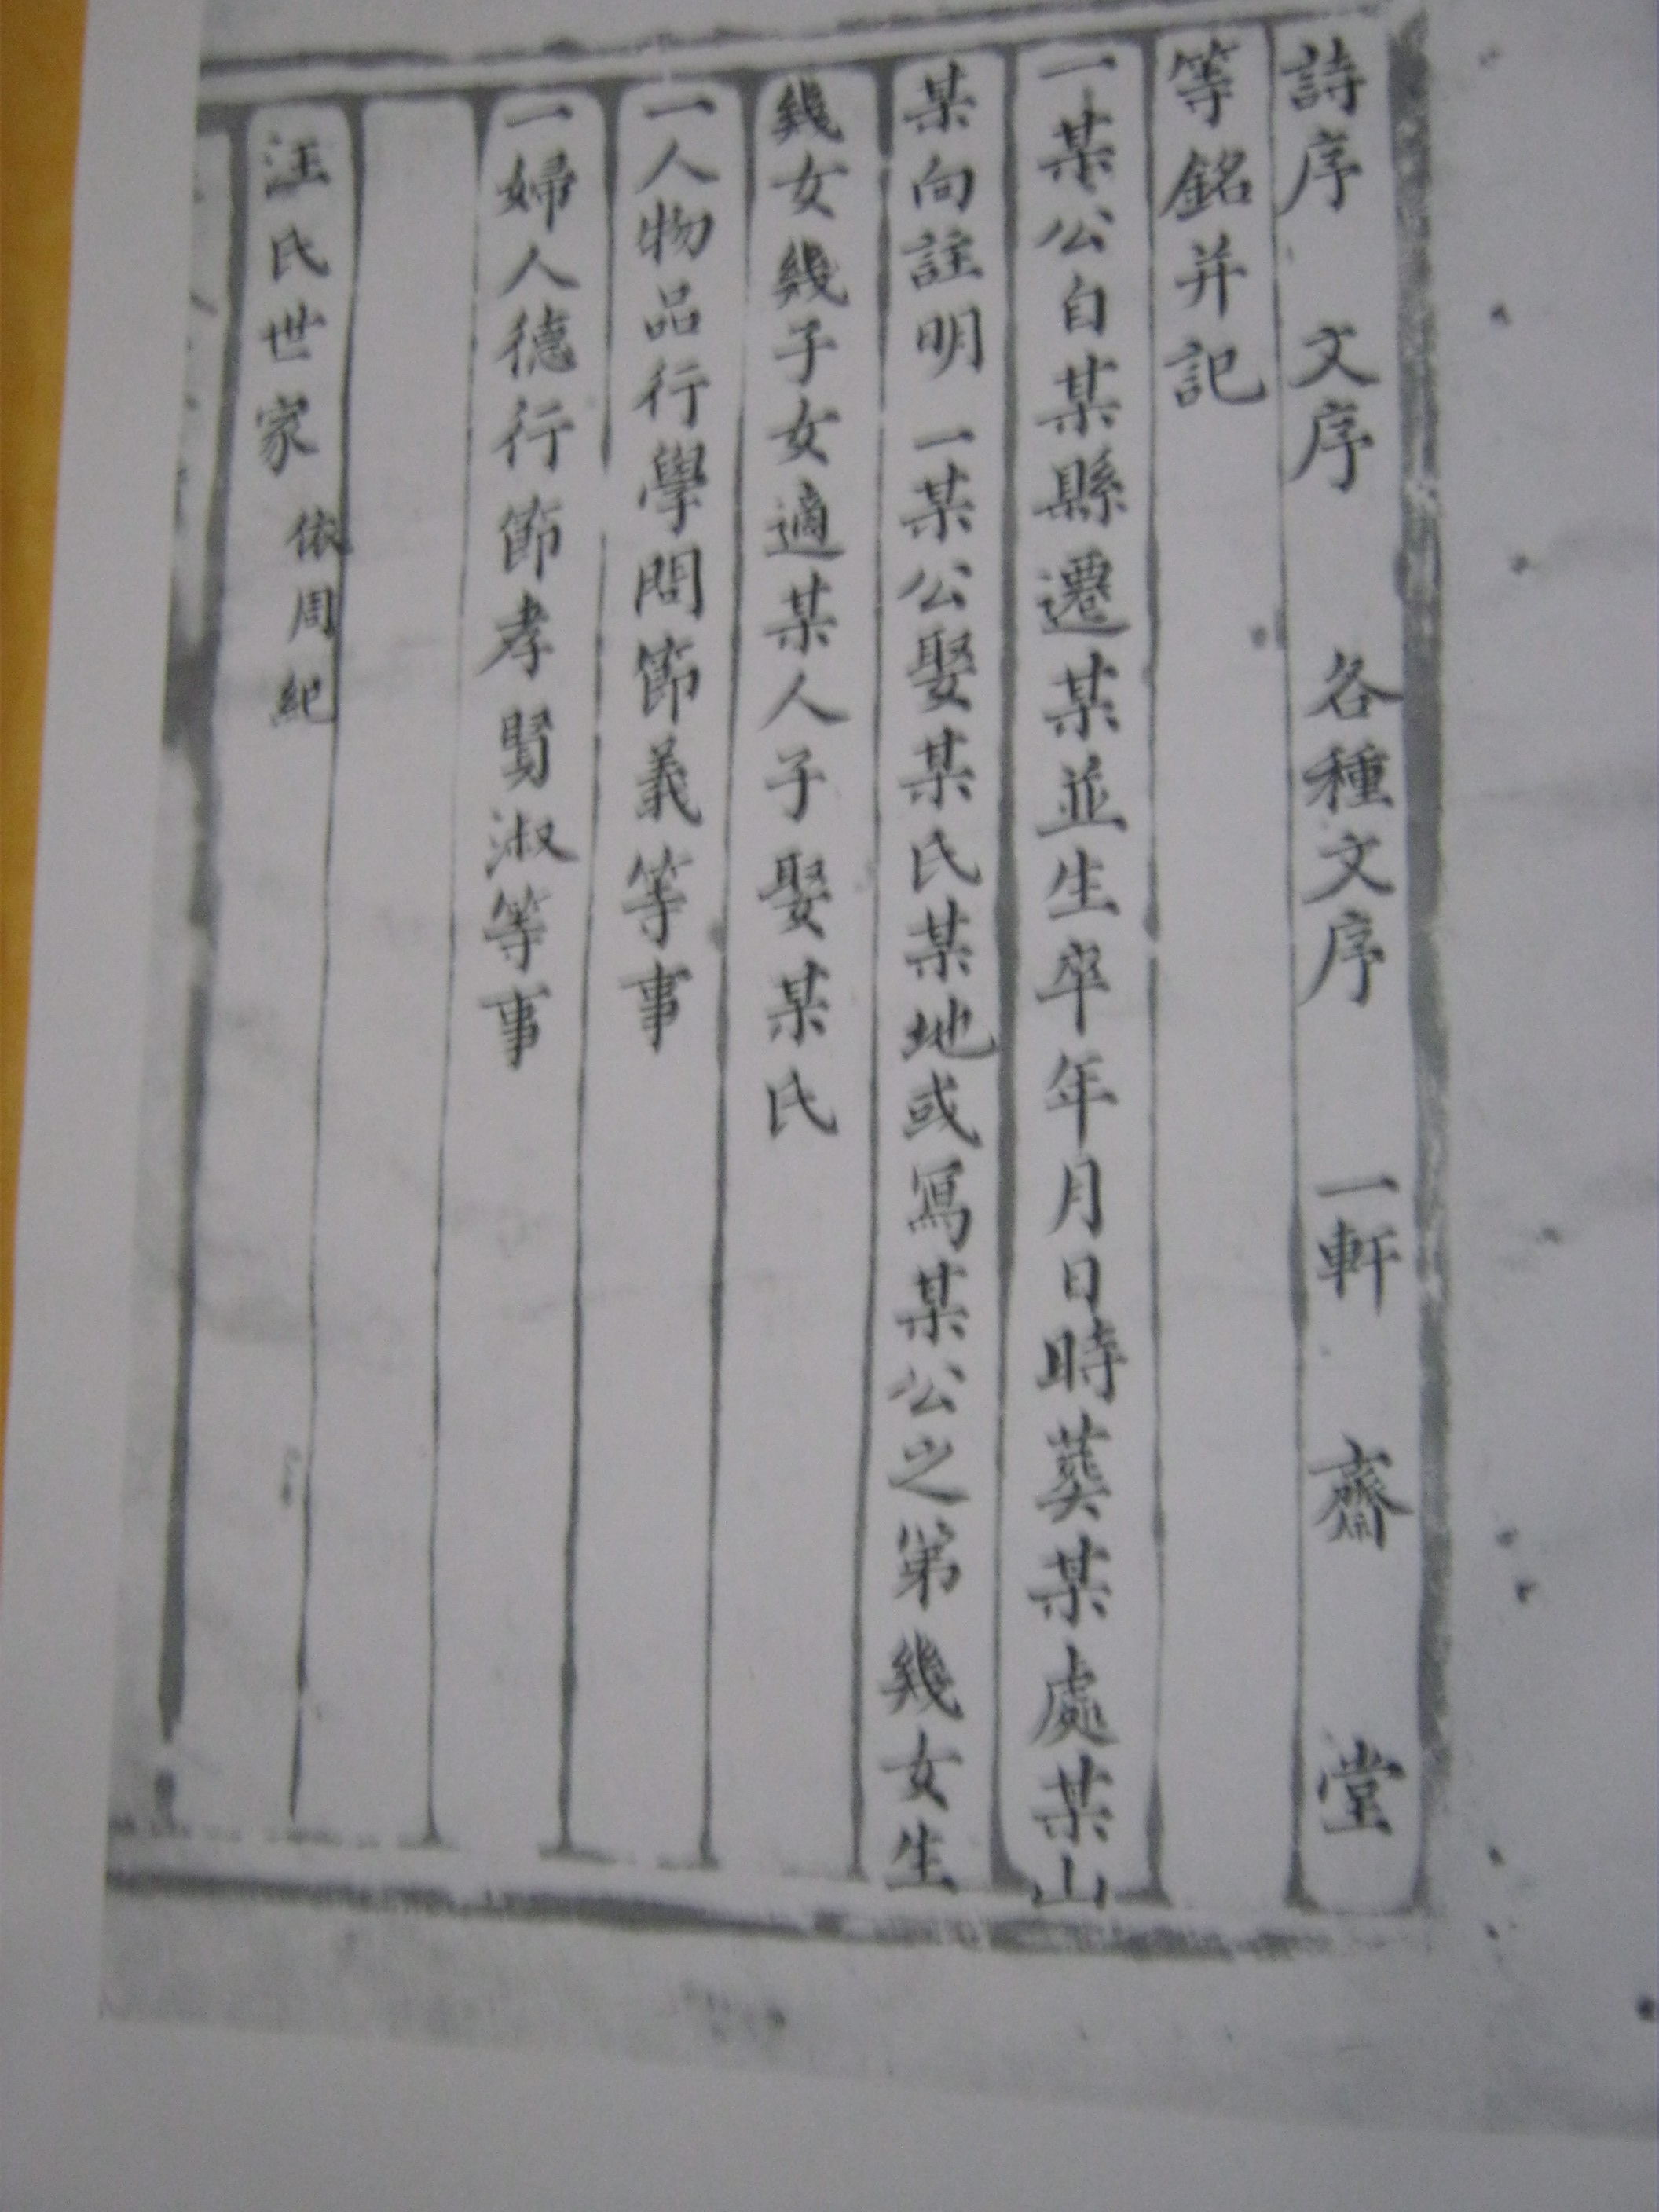 詩序　文序　各種文序　一軒　齋　堂
等銘并記
一某公自某縣遷某並生卒年月日時葬某處某山
某向註明　一某公娶某氏某地或寫某公之第幾女生
幾女幾子女適某人子娶某氏
一人物品行學問節義等事
一婦人德行節孝賢淑等事
汪氏世家　依周紀